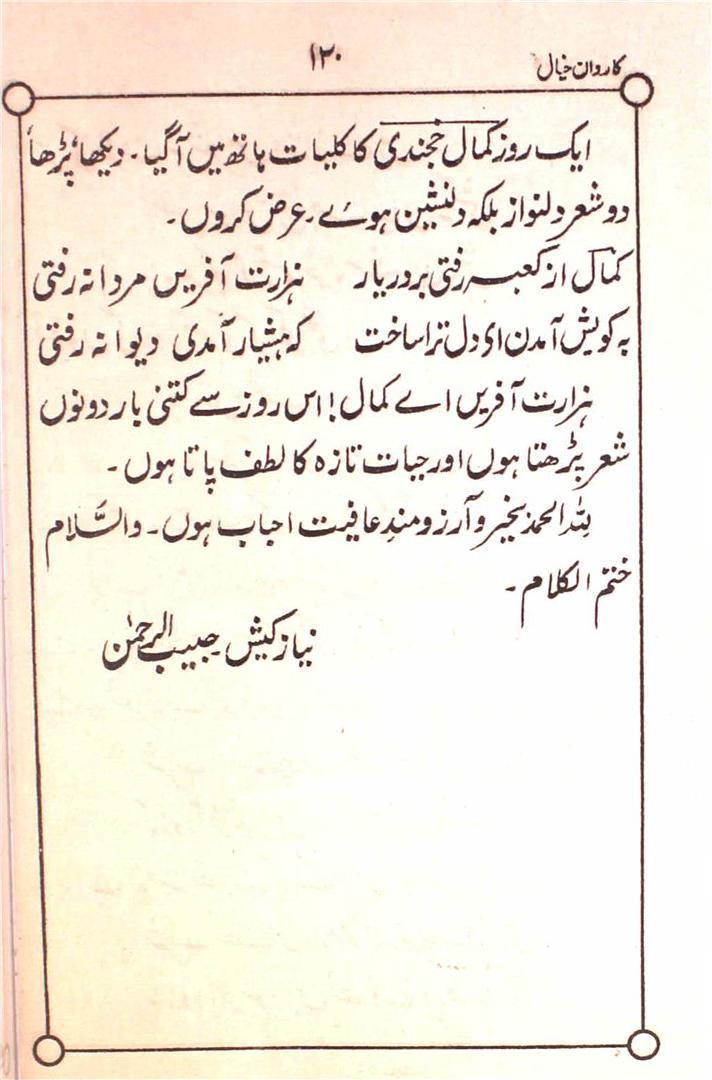 کاروان خیال
۱۲۰
ایک روز کمال خجندی کا کلیات ہاتھ میں آگیا۔ دیکھا، پڑھا،
دو شعر دلنواز بلکہ دلنشین ہوئے۔ عرض کروں۔
کمال از کعبہ رفتی بر در یار ہزارت آفریں مردانہ رفتی
بہ کویش آمدن ای دل ترا ساخت کہ ہشیار آمدی دیوانہ رفتی
ہزارت آفریں اے کمال! اس روز سے کتنی بار دونوں
شعر پڑھتا ہوں اور حیات تازہ کا لطف پاتا ہوں۔
للہ الحمد بخیر و آرزومندِ عافیت احباب ہوں۔ والسَّلام
ختم الکلام۔
نیاز کیش حبیب الرحمٰن